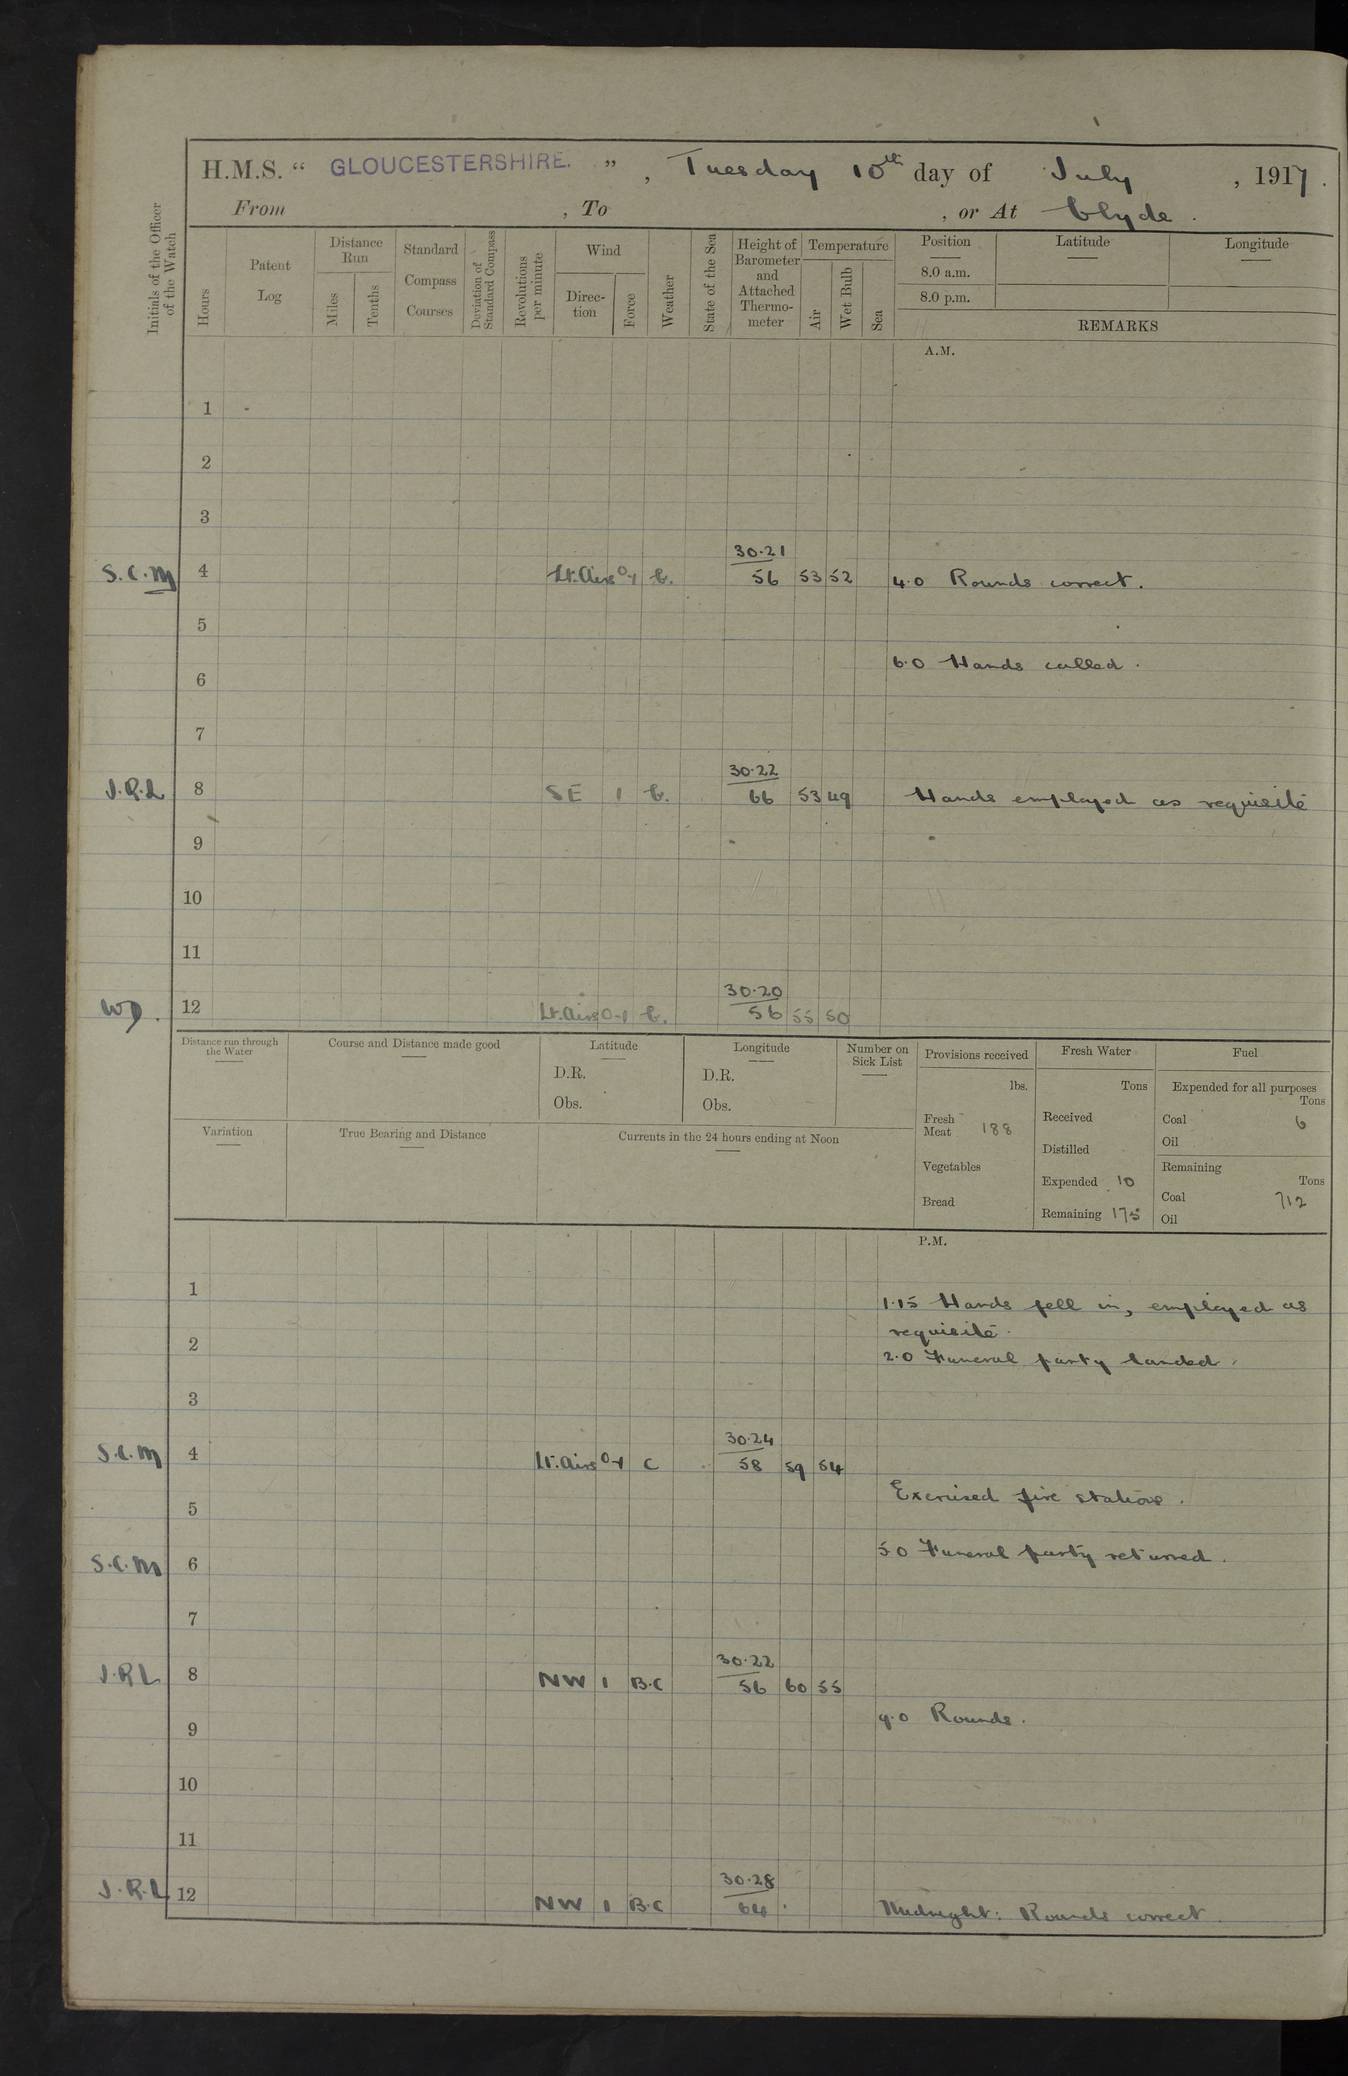 H.M.S. “ GLOUCESTERSHIRE. ” , Tuesday 10th day of July , 1917.
From , To , or At Clyde.
Initials of the Officer of the Watch
Hours
Patent Log
Distance Run
Miles
Tenths
Standard Compass Courses
Deviation of Standard Compass
Revolutions per minute
Wind
Direc-tion
Force
Weather
State of the Sea
Height of Barometer and Attached Thermo-meter
Temperature
Air
Wet Bulb
Sea
Position
8.0 a.m.
8.0 p.m.
Latitude
Longitude
REMARKS
A.M.
1
2
3
30.21
S.C.M 4 Lt.Airs 0-1 b. 56 53 52 4.0 Rounds correct.
5
6.0 Hands called.
6
7
30.22
J.R.L 8 SE 1 b. 66 53 49 Hands employed as requisite
9
10
11
30.20
WD. 12 Lt.Airs 0-1 b. 56 55 50
Distance run through the Water
Course and Distance made good
Latitude
D.R.
Obs.
Longitude
D.R.
Obs.
Number on Sick List
Provisions received
lbs.
Fresh Meat 188
Vegetables
Bread
Fresh Water
Tons
Received
Distilled
Expended 10
Remaining 175
Fuel
Expended for all purposes
Tons
Coal 6
Oil
Remaining
Tons
Coal 712
Oil
Variation
True Bearing and Distance
Currents in the 24 hours ending at Noon
P.M.
1
1.15 Hands fell in, employed as
requisite.
2
2.0 Funeral party landed.
3
30.24
S.C.M 4 Lt.Airs 0-1 C 58 59 54
Exercised fire stations.
5
5.0 Funeral party returned.
S.C.M 6
7
30.22
J.R.L 8 NW 1 B.C 56 60 55
9.0 Rounds.
9
10
11
30.28
J.R.L 12 NW 1 B.C 64 Midnight: Rounds correct.